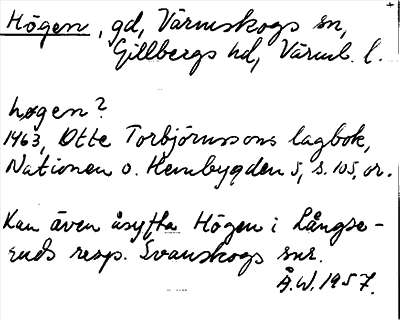 Högen, gd, Värmskogs sn,
Gillbergs hd, Värml. l.
høgen?
1463, Otte Torbjörnssons lagbok,
Nationen o. Hembygden 5, s. 105, or.
Kan även åsyfta Högen i Långse-
ruds resp. Svanskogs snr.
Å.W. 1957.